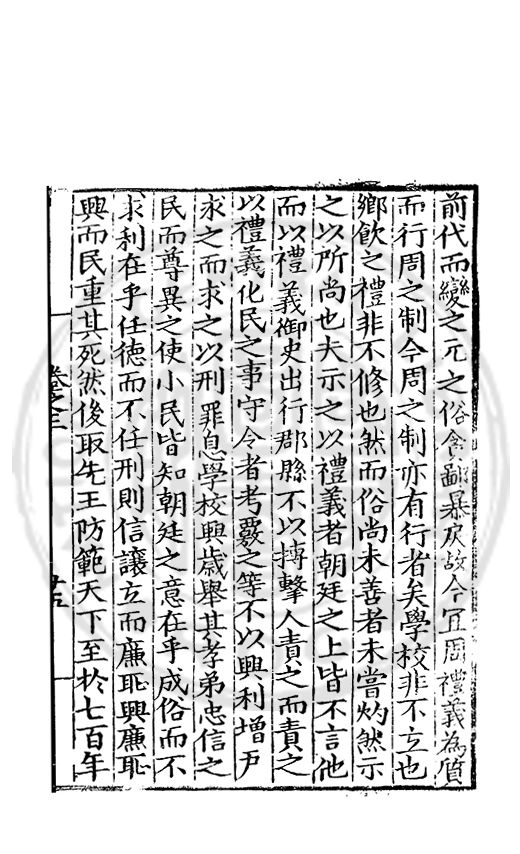 前代而變之元之俗貪鄙暴戾故今冝周禮義為質
而行周之制今周之制亦有行者矣學校非不立也
鄉飲之禮非不修也然而俗尚未善者未嘗灼然示
之以所尚也夫示之以禮義者朝廷之上皆不言他
而以禮義御史出行郡縣不以搏擊人責之而責之
以禮義化民之事守令者考覈之等不以興利增戸
求之而求之以刑罪息學校興歲舉其孝弟忠信之
民而尊異之使小民皆知朝廷之意在乎成俗而不
求利在乎任德而不任刑則信讓立而廉耻興廉耻
興而民重其死然後取先王防範天下至於七百年
卷之三
廿五